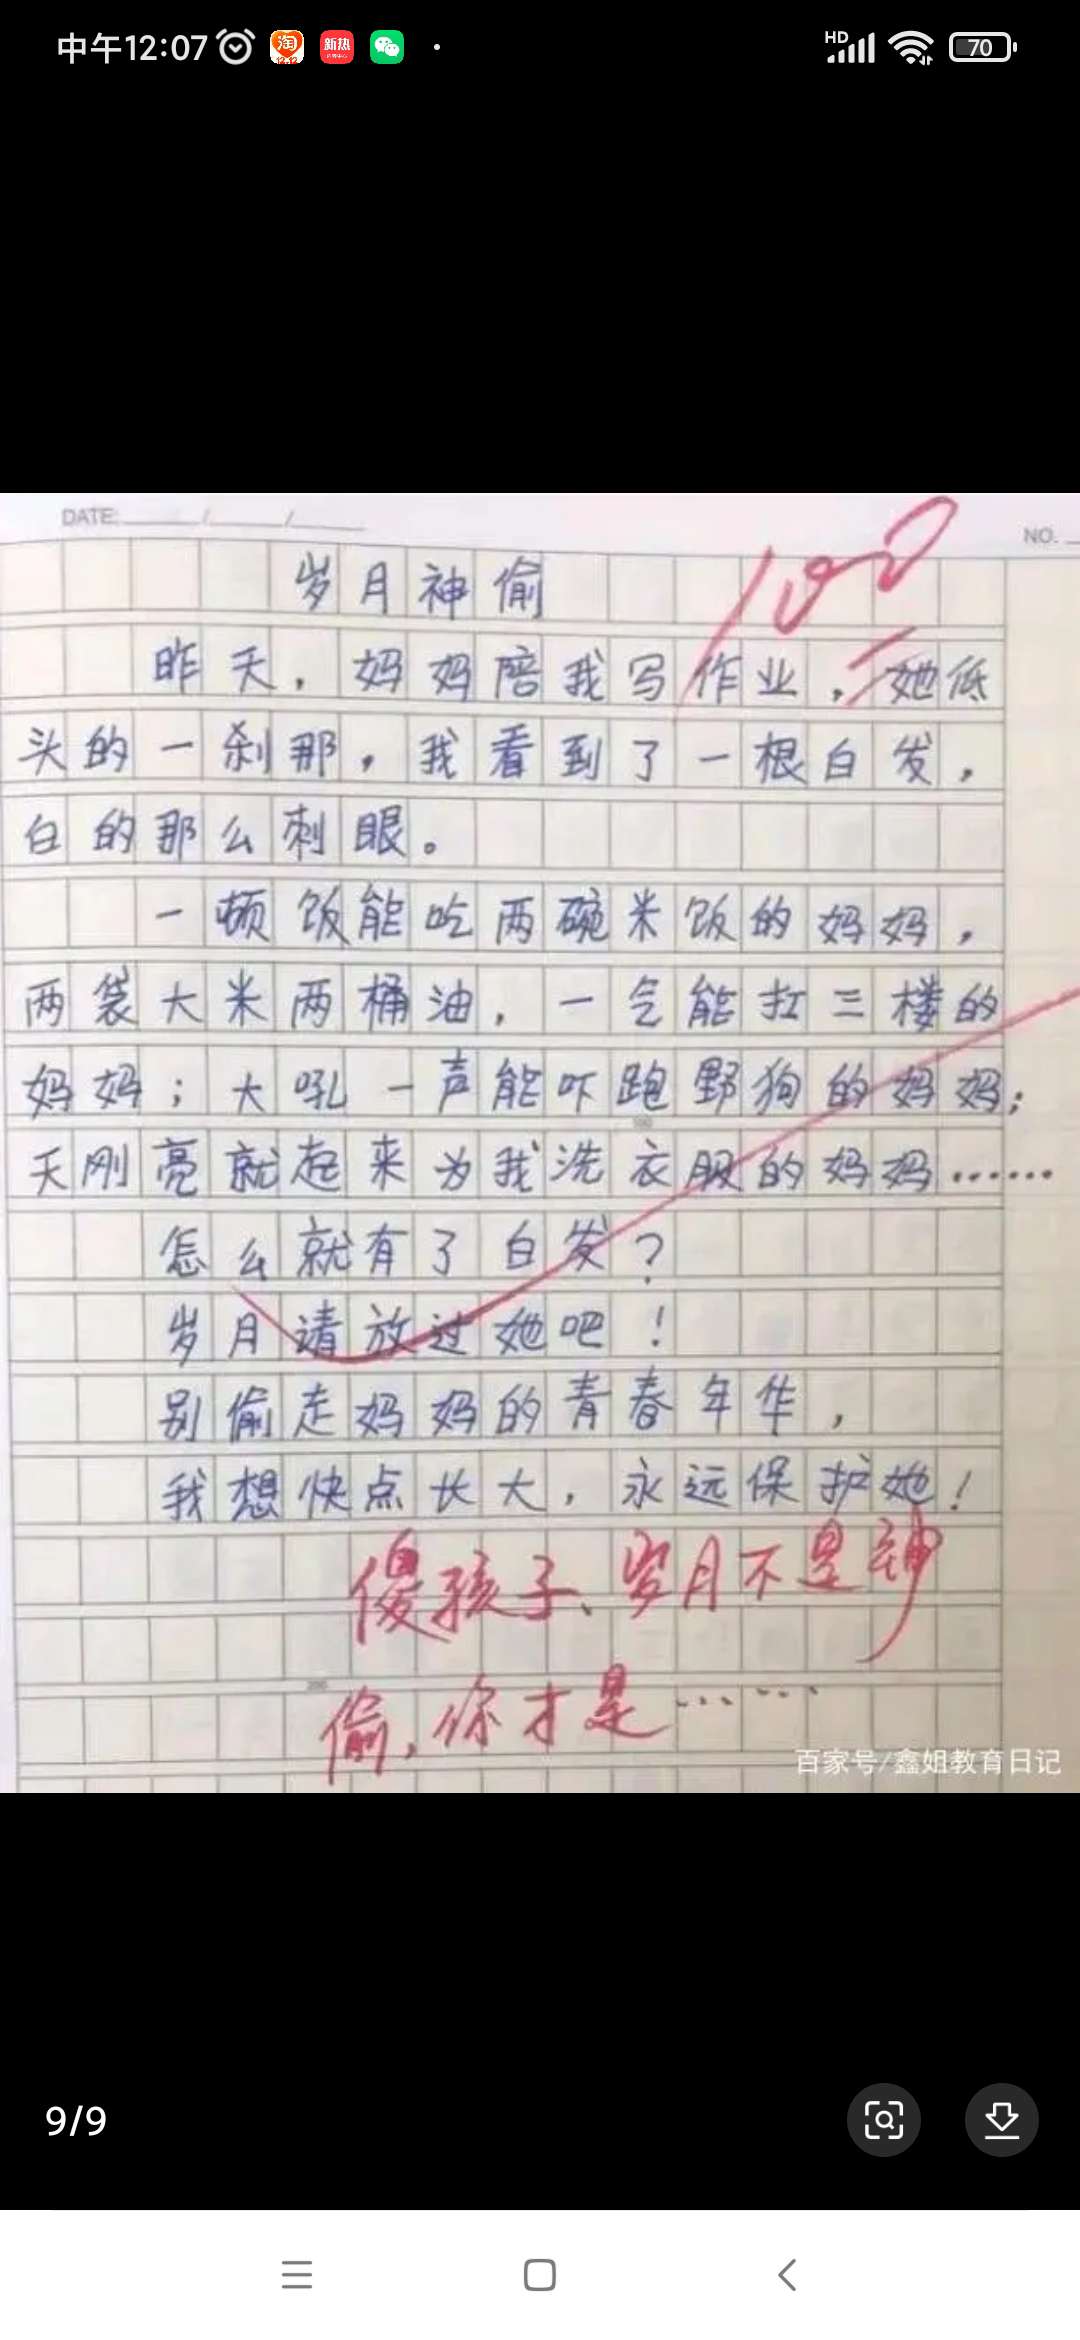 中午12:07
淘
12.12
新热
HD
70
DATE: / /
NO.
100
岁月神偷
昨天，妈妈陪我写作业，她低
头的一刹那，我看到了一根白发，
白的那么刺眼。
一顿饭能吃两碗米饭的妈妈，
两袋大米两桶油，一气能扛三楼的
妈妈；大吼一声能吓跑野狗的妈妈；
天刚亮就起来为我洗衣服的妈妈……
怎么就有了白发？
岁月请放过她吧！
别偷走妈妈的青春年华，
我想快点长大，永远保护她！
傻孩子、岁月不是神
偷，你才是……
百家号/鑫姐教育日记
9/9